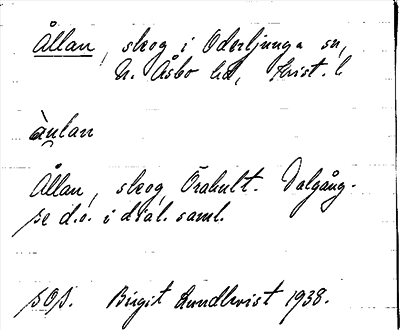 Ållan, skog i Oderljunga sn,
N. Åsbo hd, Krist. l
àulan
Ållan, skog, Örahult. Dalgång.
se d.o. i dial. saml.
Birgit Lundkvist 1938.